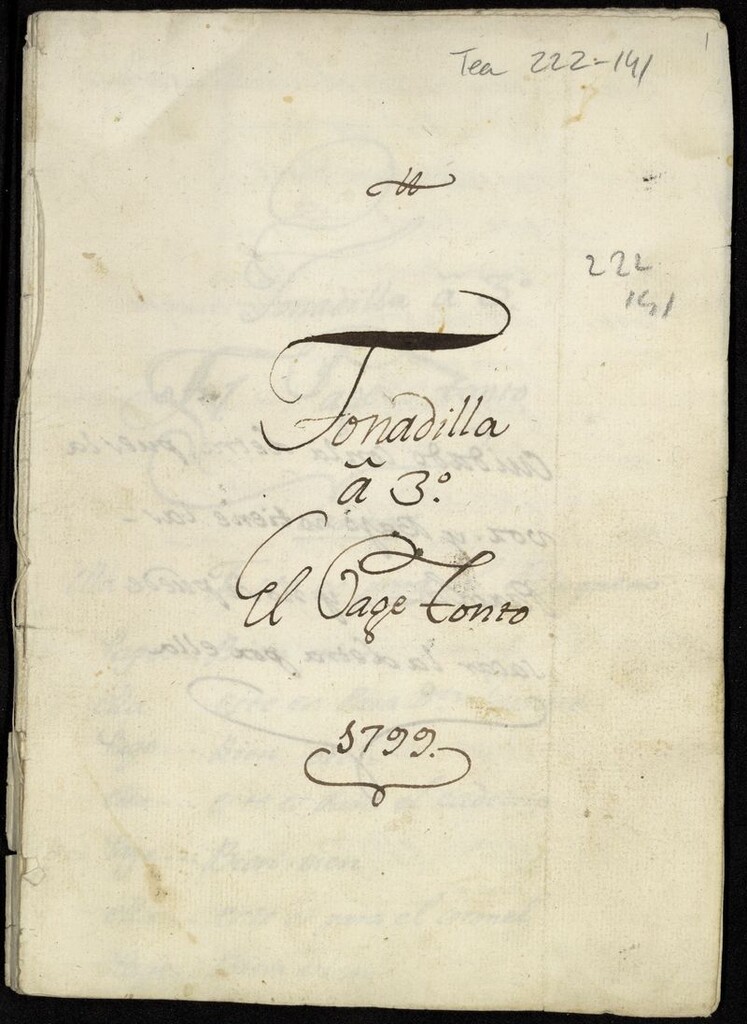 Tea 222-141
1
222
141
Tonadilla
â 3º.
El Page tonto
1799.